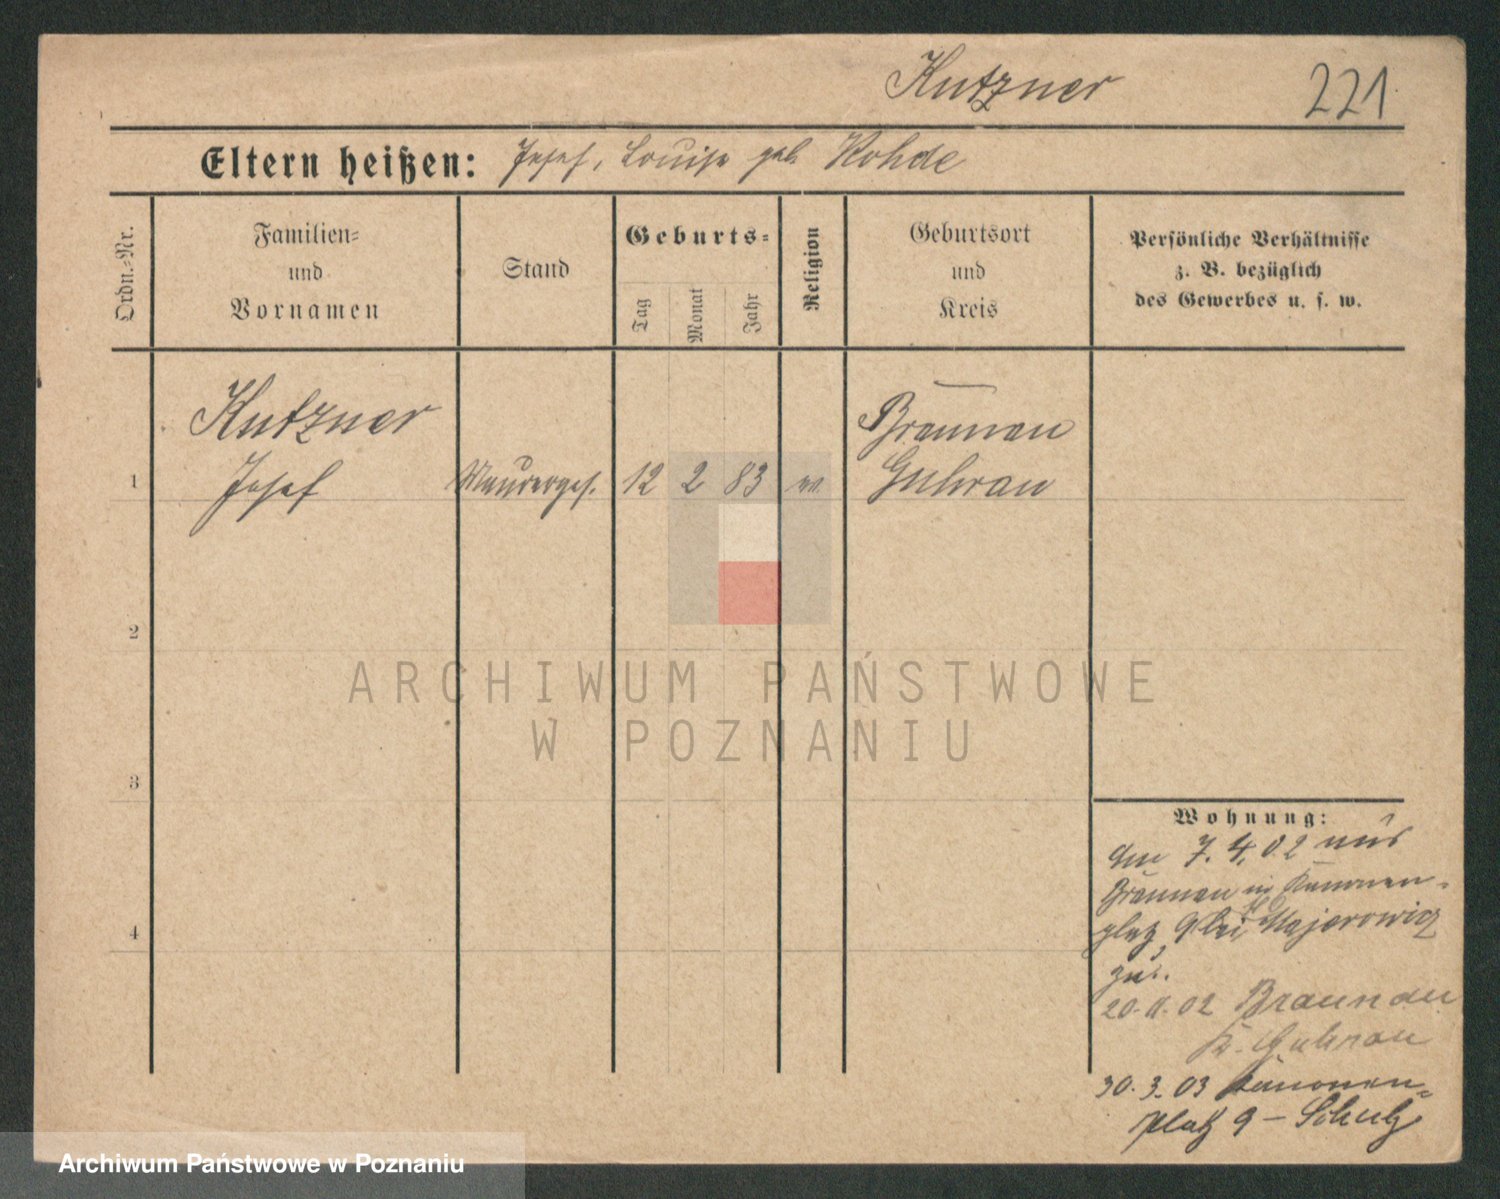 Kutzner 221
Eltern heißen: Josef, Louise geb. Rohde
Ordn.-Nr.
Familien-
und
Vornamen
Stand
Geburts-
Tag
Monat
Jahr
Religion
Geburtsort
und
Kreis
Persönliche Verhältnisse
z. B. bezüglich
des Gewerbes u. s. w.
Kutzner
Josef
1
Maurerges. 12 2 83
Braunau
Guhrau
2
3
4
ARCHIWUM PAŃSTWOWE
W POZNANIU
Wohnung:
den 7.4.02 aus
Braunau in Kanonen-
platz 9 bei Majerowicz
zu.
20.11.02 Braunau
K. Guhrau
30.3.03 Kanonen-
platz 9 – Schulz
Archiwum Państwowe w Poznaniu